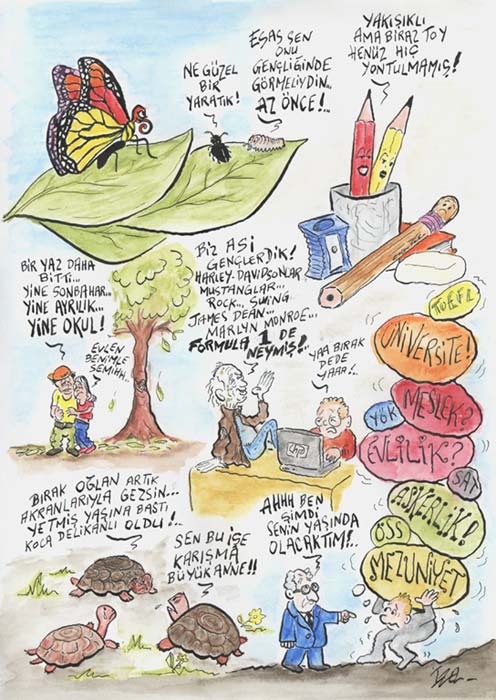 NE GÜZEL
BİR
YARATIK!
ESAS SEN
ONU
GENÇLİĞİNDE
GÖRMELİYDİN..
AZ ÖNCE!..
YAKIŞIKLI
AMA BİRAZ TOY
HENÜZ HİÇ
YONTULMAMIŞ!
BİR YAZ DAHA
BİTTİ...
YİNE SONBAHAR..
YİNE AYRILIK..
YİNE OKUL!
EVLEN
BENİMLE
SEMİHA..
BİZ ASİ
GENÇLERDİK!
HARLEY-DAVIDSONLAR
MUSTANGLAR...
ROCK.., SWING
JAMES DEAN...
MARLYN MONROE...
FORMULA 1 DE
NEYMİŞ!..
YAA BIRAK
DEDE
YAAA!..
hp
TOEFL
ÜNİVERSİTE!
MESLEK?
YÖK
EVLİLİK?
ASKERLİK!
ÖSS
MEZUNİYET
BIRAK OĞLAN ARTIK
AKRANLARIYLA GEZSİN...
YETMİŞ YAŞINA BASTI
KOCA DELİKANLI OLDU!..
SEN BU İŞE
KARIŞMA
BÜYÜKANNE!!
AHHH BEN
ŞİMDİ
SENİN YAŞINDA
OLACAKTIM!..